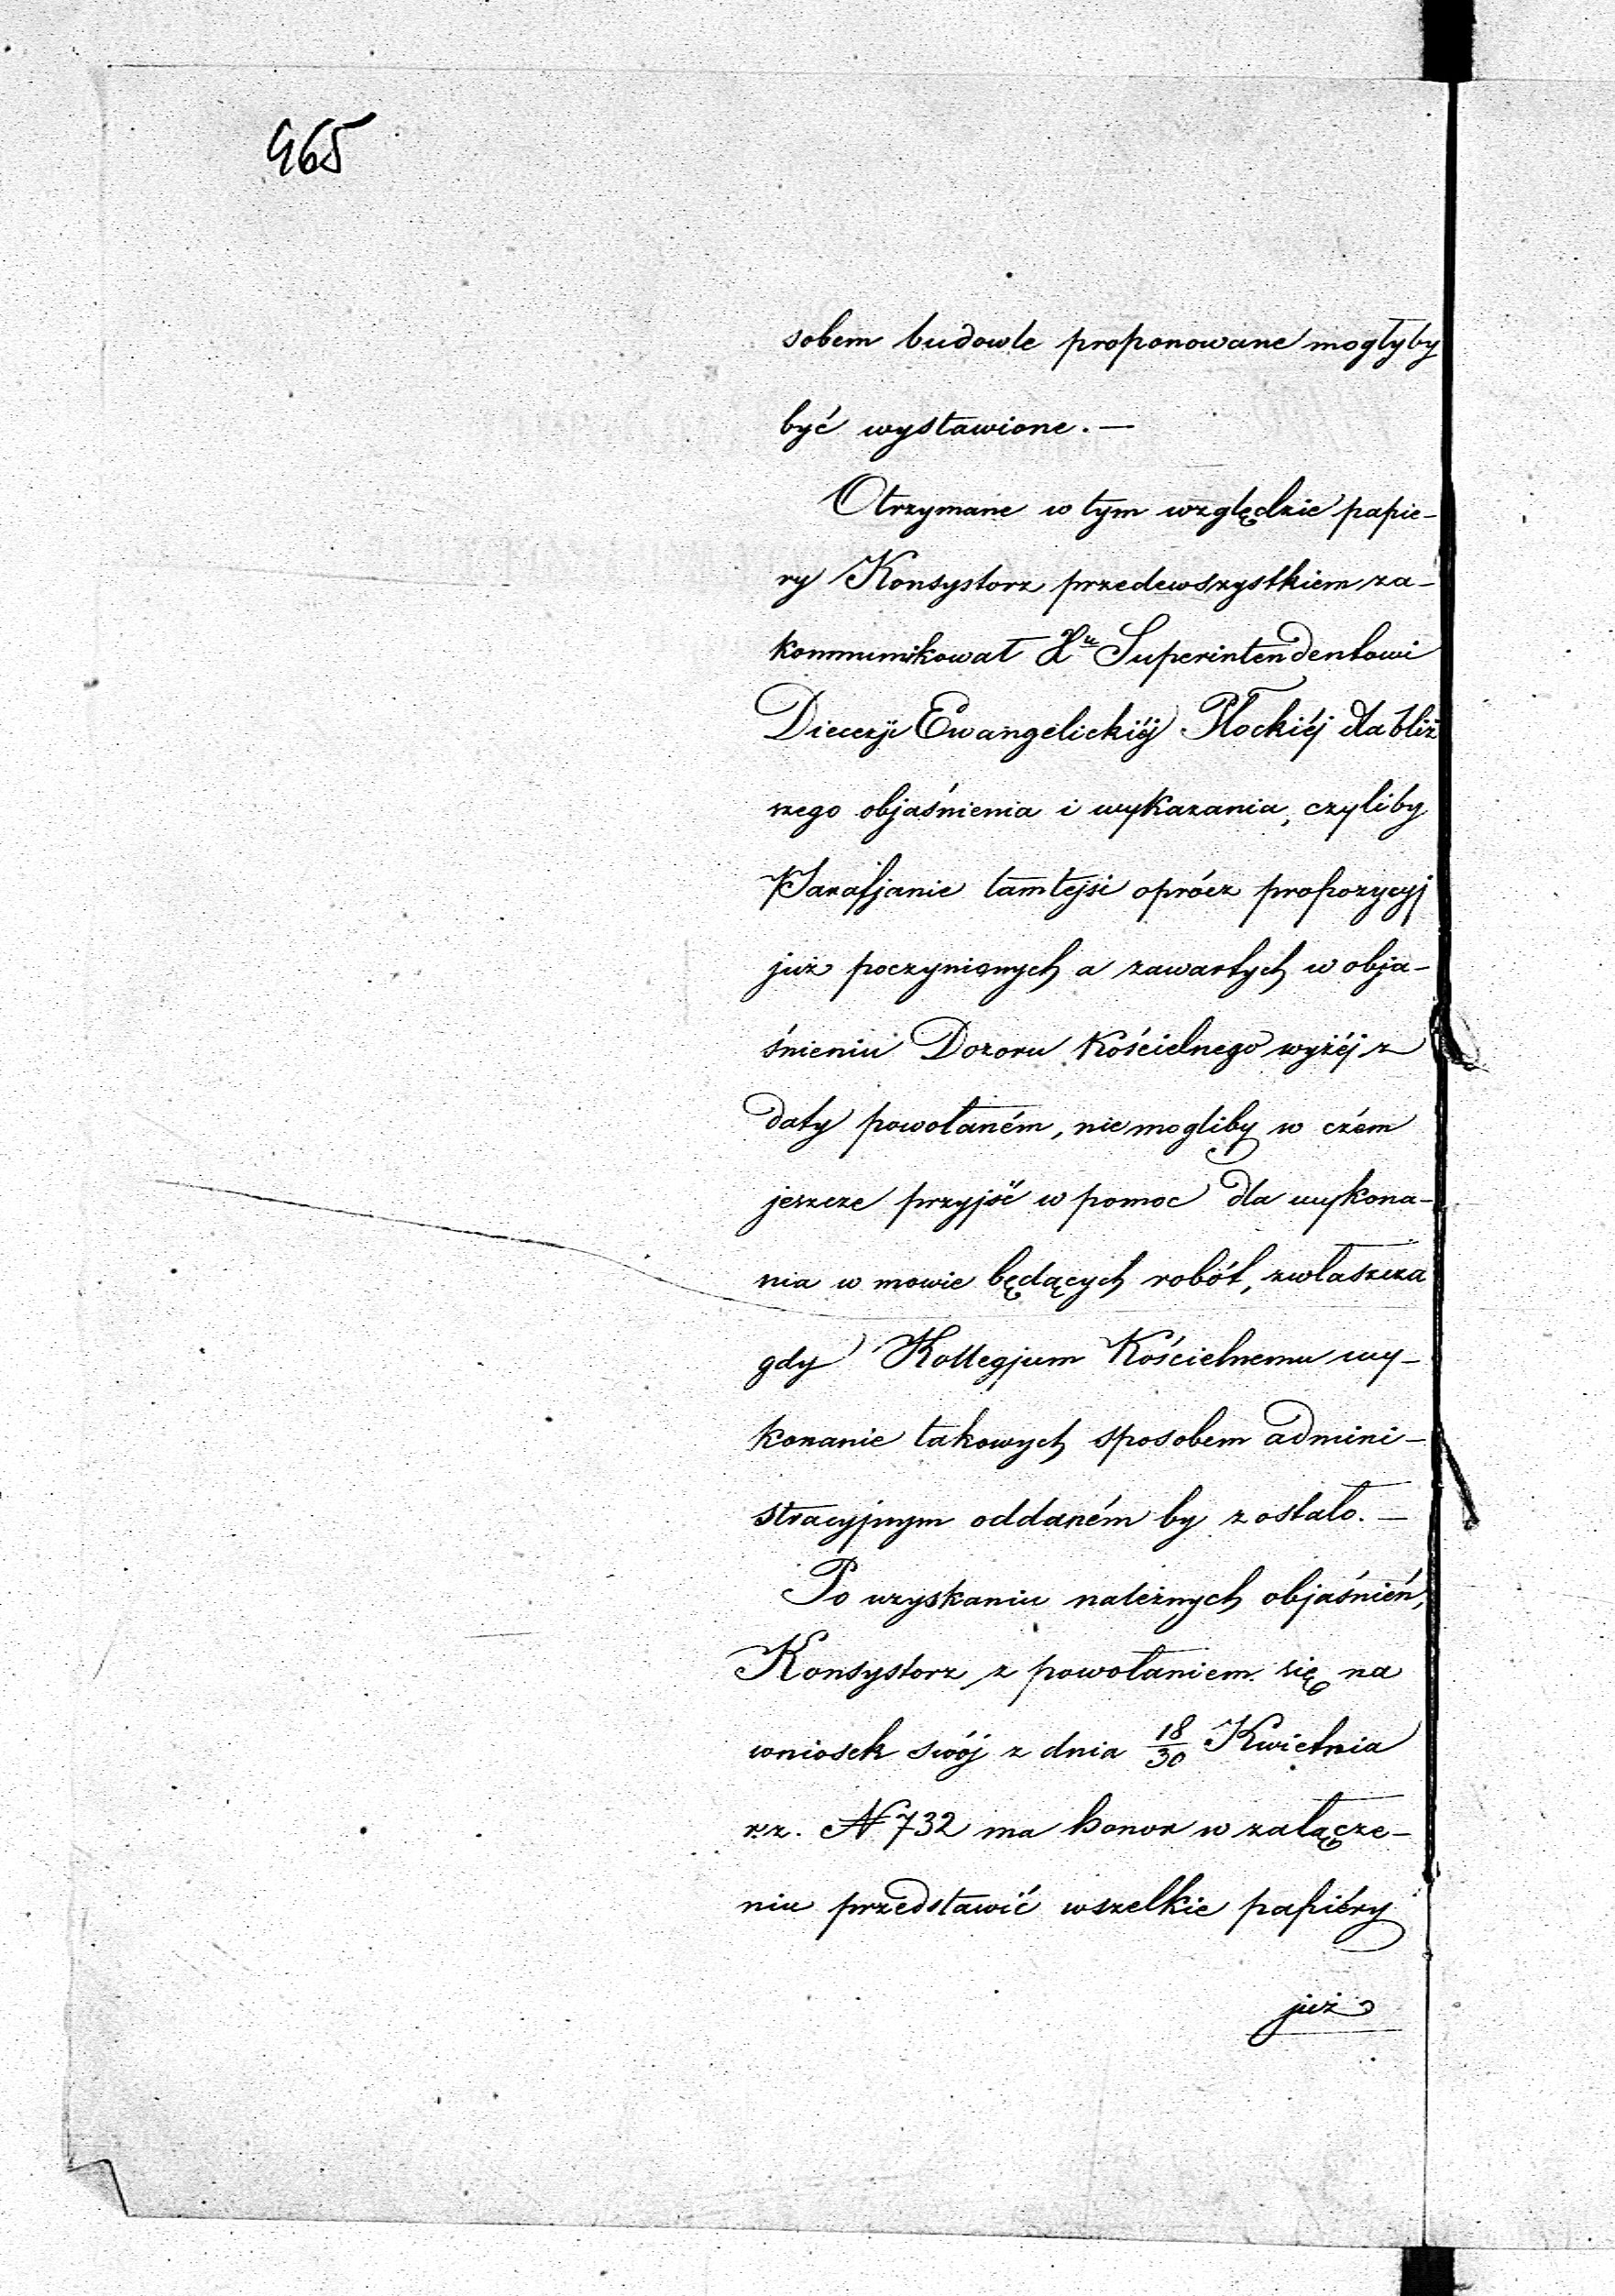 465
sobem budowle proponowane mogłyby
być wystawione. —
Otrzymane w tym względzie papie-
ry Konsystorz przedewszystkiem za-
kommunikował Xu Superintendentowi
Diecezji Ewangelickiéj Płockiéj dla bliż
szego objaśnienia i wykazania, czyliby
Parafjanie tamtejsi oprócz propozycyj
już poczynionych a zawartych w obja-
śnieniu Dozoru Kościelnego wyżéj z
daty powołaném, nie mogliby w czém
jeszcze przyjść w pomoc dla wykona-
nia w mowie będących robót, zwłaszcza
gdy Kollegjum Kościelnemu wy-
konanie takowych sposobem admini-
stracyjnym oddaném by zostało. —
Po uzyskaniu należnych objaśnień,
Konsystorz z powołaniem się na
wniosek swój z dnia 18/30 Kwietnia
r.z. N 732 ma honor w załącze-
niu przedstawić wszelkie papiéry
już